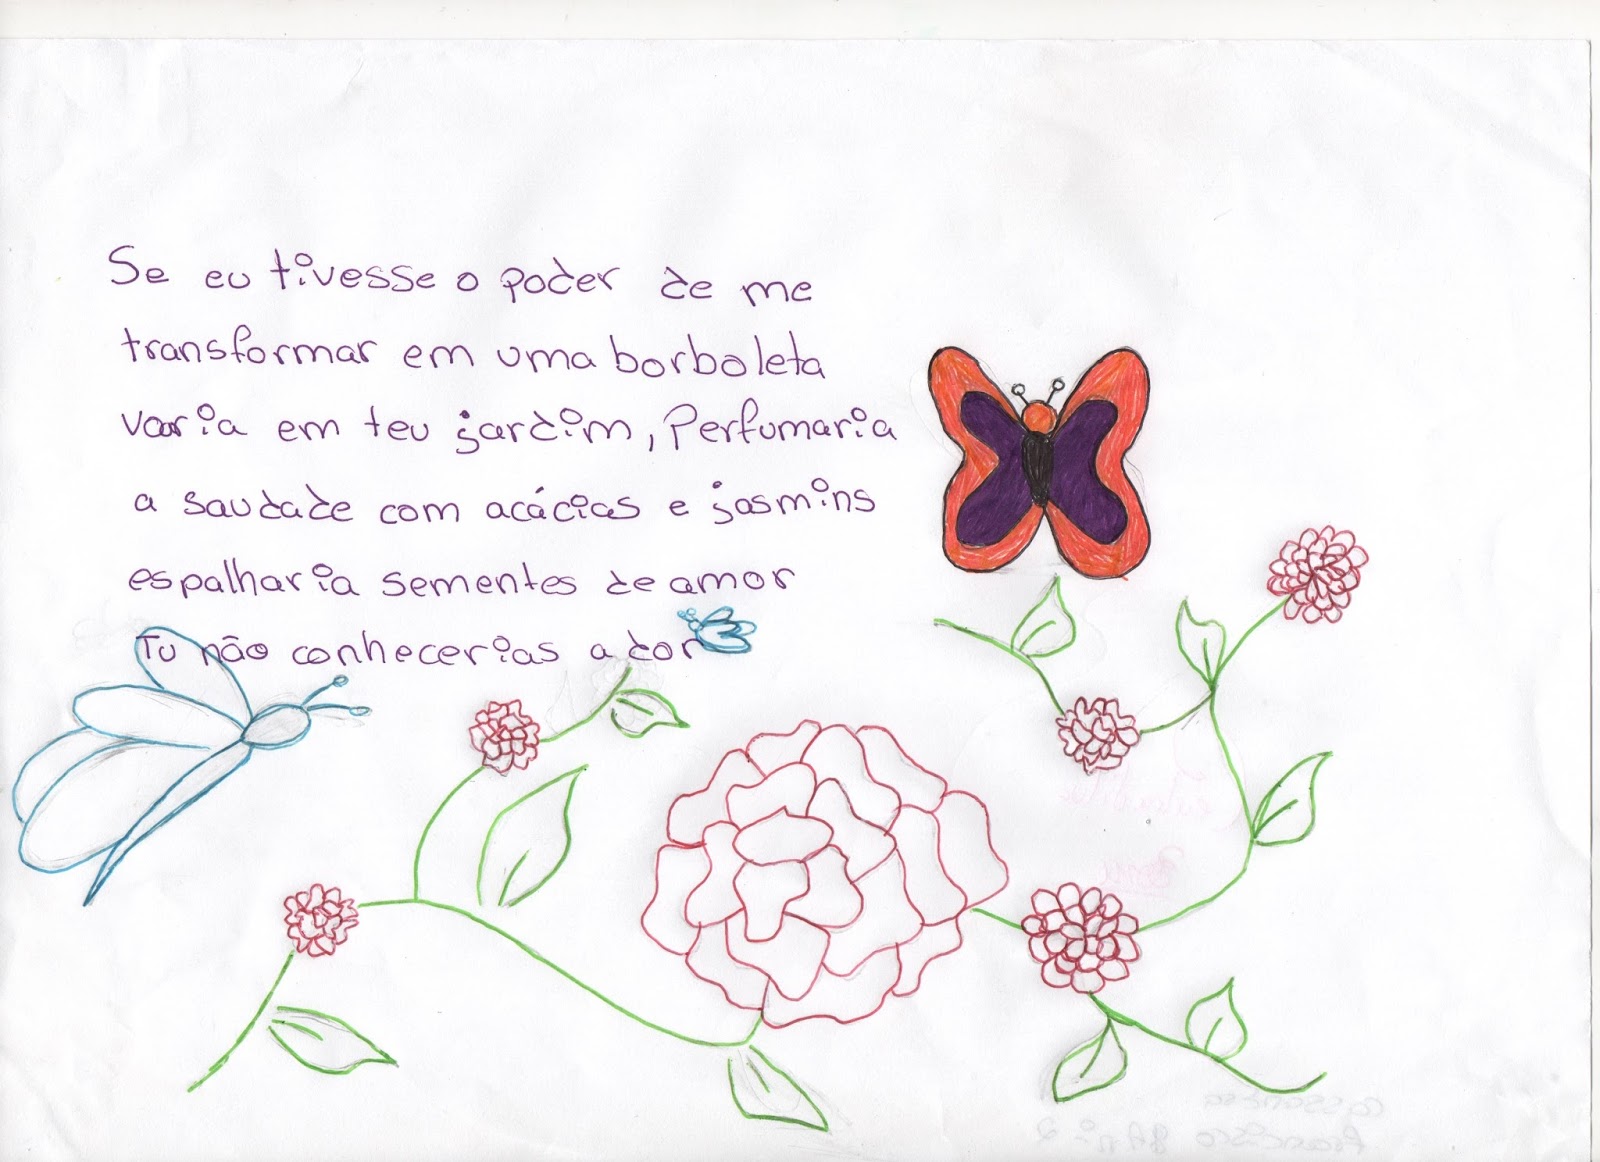 Se eu tivesse o poder de me
transformar em uma borboleta
voaria em teu jardim, perfumaria
a saudade com acácias e jasmins
espalharia sementes de amor
Tu não conhecerias a dor